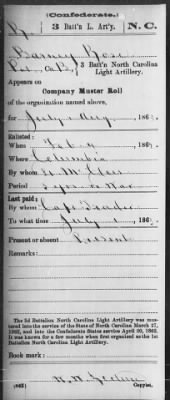 (Confederate.)
R 3 Batt'n L. Art'y. N.C.
Barney Rose
Pvt, Co B, 3 Batt'n North Carolina
Light Artillery.
Appears on
Company Muster Roll
of the organization named above,
for July & Aug, 186
Enlisted:
When Feb 4, 186
Where Columbia
By whom
Period 3 yrs or War
Last paid:
By whom Capt Badger
To what time July 1, 186
Present or absent Present
Remarks:
The 3d Battalion North Carolina Light Artillery was mus-
tered into the service of the State of North Carolina March 17,
1862, and into the Confederate States service April 30, 1862.
It was known for a few months when first organized as the 1st
Battalion North Carolina Light Artillery.
Book mark:
(642)
Copyist.